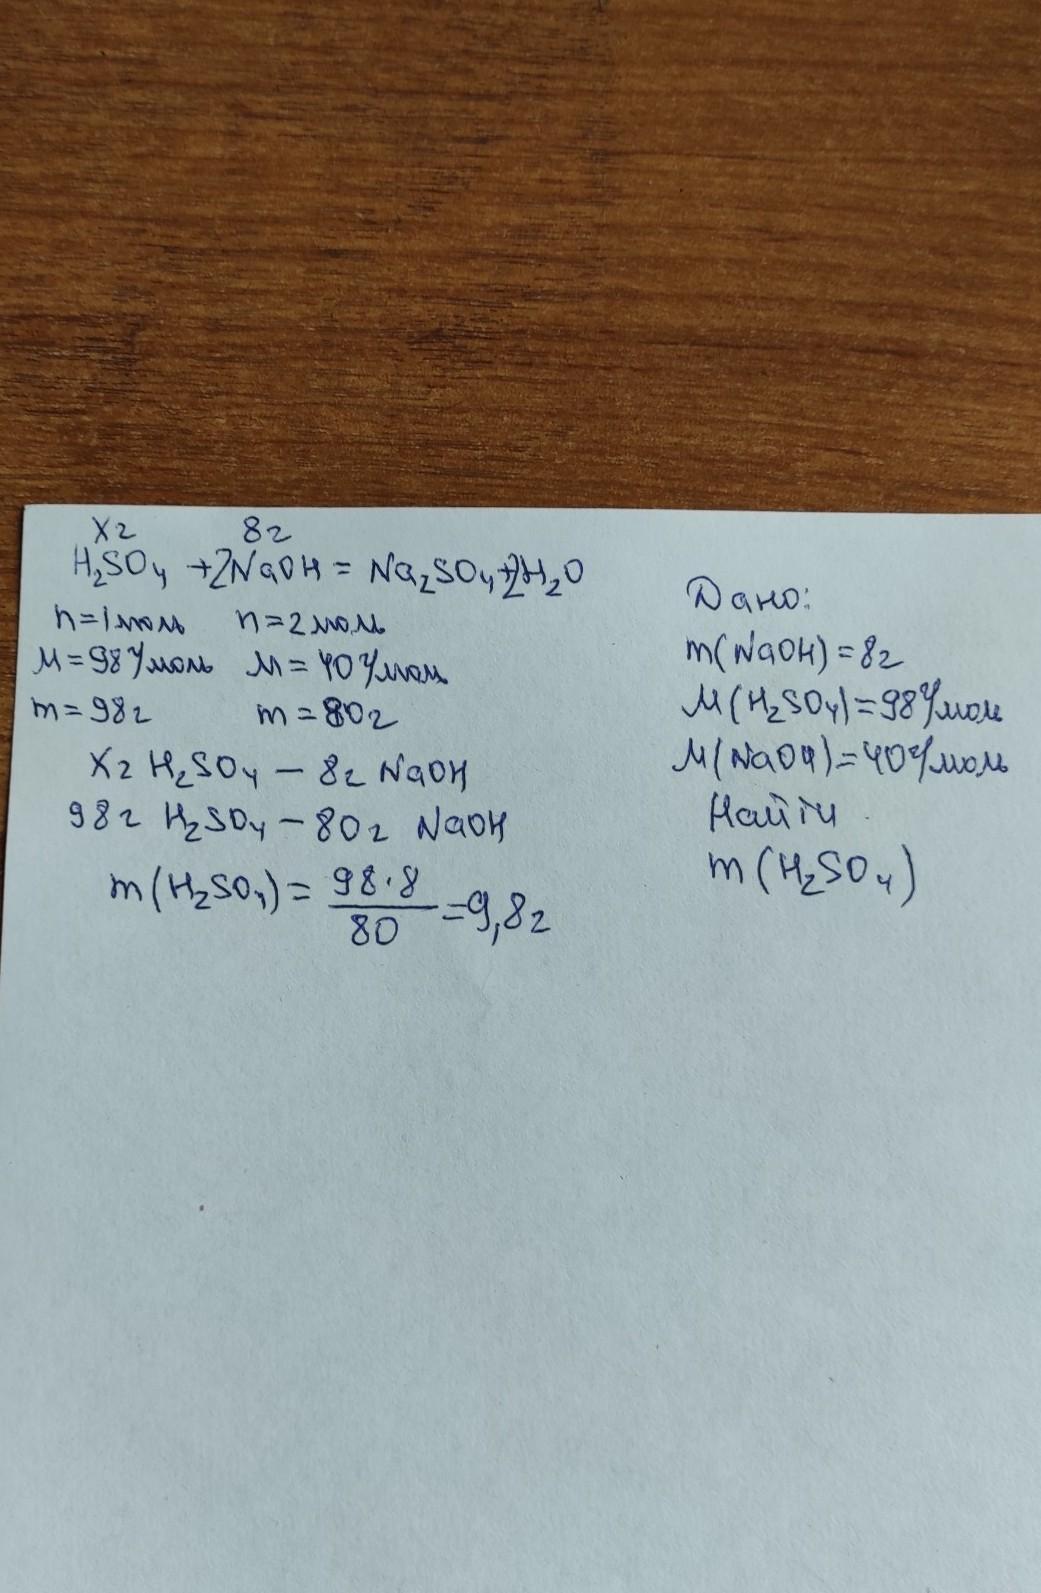 Xг 8г
H₂SO₄ + 2NaOH = Na₂SO₄ + 2H₂O
n=1моль n=2моль
M=98г/моль M=40г/моль
m=98г m=80г
Xг H₂SO₄ – 8г NaOH
98г H₂SO₄ – 80г NaOH
m(H₂SO₄) = 98·8/80 = 9,8г
Дано:
m(NaOH)=8г
M(H₂SO₄)=98г/моль
M(NaOH)=40г/моль
Найти
m(H₂SO₄)